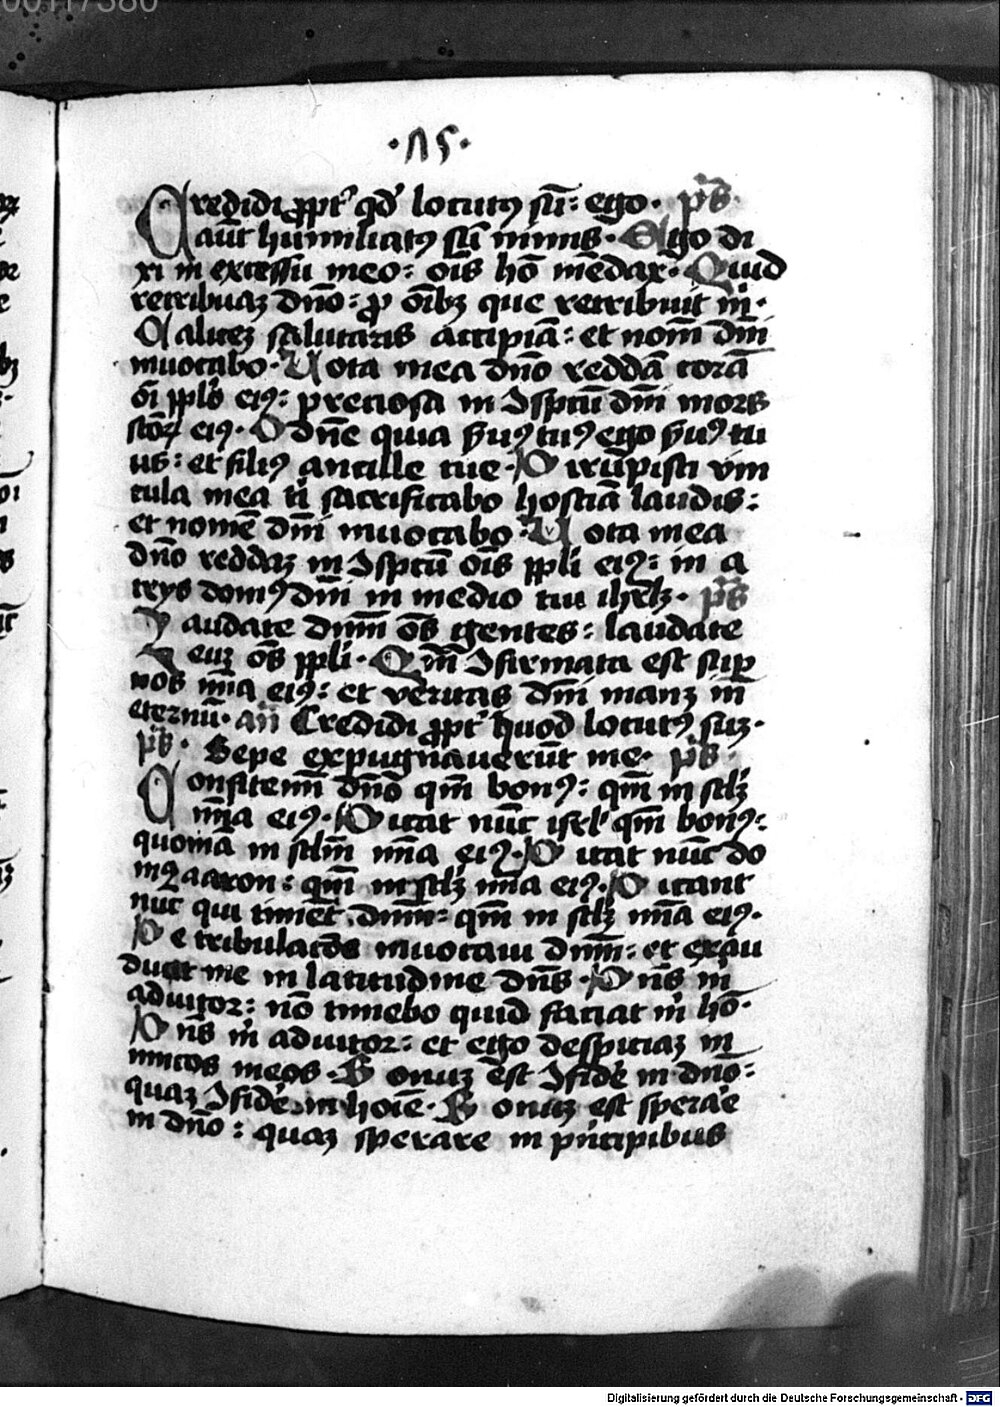 ·115·
Credidi ꝓpt̓ qd̓ locutꝰ sū: ego· ps̄
aūt humiliatꝰ sū nimis· Ego di
xi in excessu meo: oīs hō mēdax· Quid
retribuaꝫ dn̄o: ꝓ oībꝫ que retribuit m̄·
Caliceꝫ salutaris accipiā: et nom̄ dm̄
inuocabo· Uota mea dn̄o reddā corā
oī ppl̓o eiꝰ: preciosa in ꝯspc̄tu dn̄i mors
sc̄oꝝ eiꝰ· O dn̄e quia ẜuꝰ tuꝰ ego ẜuꝰ tu
us: et filiꝰ ancille tue· Dirupisti vin
cula mea ti sacrificabo hostiā laudis:
et nomē dn̄i inuocabo· Uota mea
dn̄o reddaꝫ in ꝯspc̄tu oīs ppli eiꝰ: in a
trys domꝰ dn̄i in medio tui ihrl̓m· ps̄
Laudate dnm̄ ōs gentes: laudate
eum ōs ppli· Qm̄ ꝯfirmata est sup
nos mīa eiꝰ: et veritas dn̄i manꝫ in
eternū· an̄ Credidi ꝓpt̓ quod locutꝰ suꝫ·
ps̄· Sepe expugnauerūt me· ps̄
Confitemi dn̄o qm̄ bonꝰ: qm̄ in sclꝫ
mīa eiꝰ· Dicat nūc isrl̓ qm̄ bonꝰ:
quoniā in sclm̄ mīa eiꝰ· Dicat nūc do
mꝰ aaron: qm̄ in sclꝫ mīa eiꝰ· Dicant
nuc qui timēt dnm̄: qm̄ in sclꝫ mīa eiꝰ·
De tribulacōe inuocaui dnm̄: et exau
diuit me in latitudine dn̄s· Dn̄s m̄
adiutor: nō timebo quid faciat m̄ hō·
Dn̄s m̄ adiutor: et ego despiciaꝫ in
imicos meos· Bonuꝫ est ꝯfide̓ in dn̄o:
quaꝫ ꝯfide̓ in hoīe· Bonuꝫ est spera̓e
in dn̄o: quaꝫ sperare in pn̓cipibus
Digitalisierung gefördert durch die Deutsche Forschungsgemeinschaft - DFG